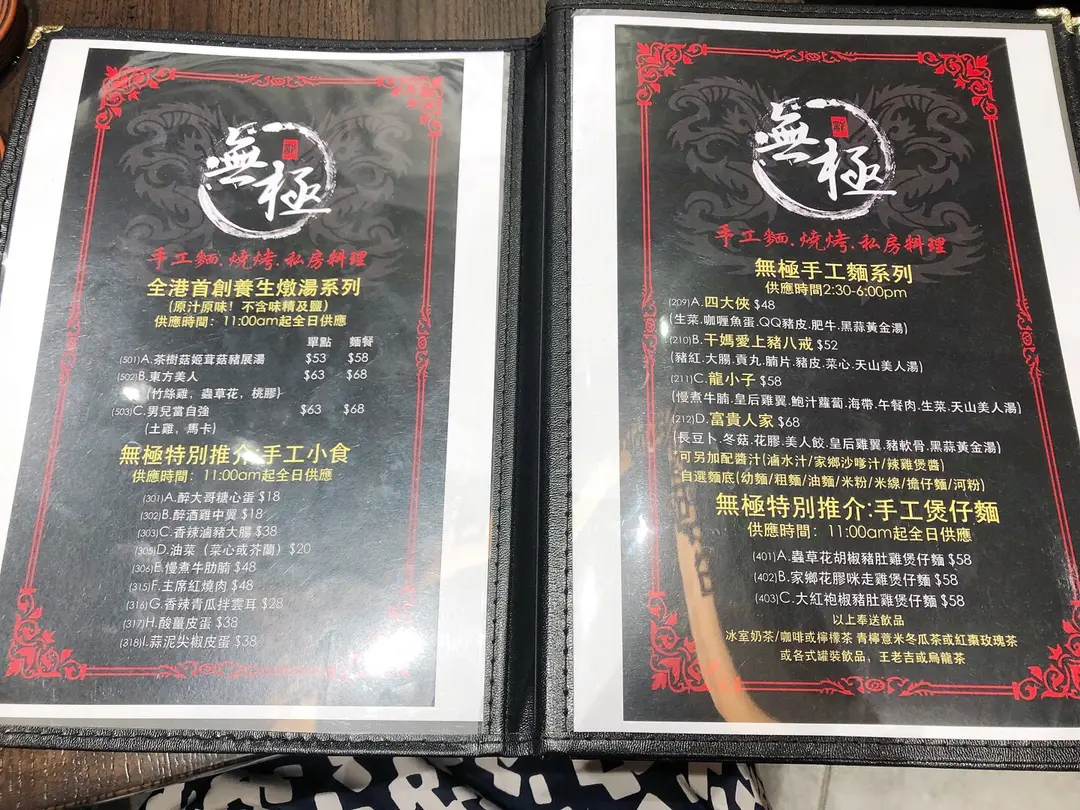 無極
手工麵.燒烤.私房料理
全港首創養生燉湯系列
(原汁原味！不含味精及鹽)
供應時間：11:00am起全日供應
單點 麵餐
(501)A.茶樹菇姬茸菇豬展湯 $53 $58
(502)B.東方美人 $63 $68
(竹絲雞，蟲草花，桃膠)
(503)C.男兒當自強 $63 $68
(土雞，馬卡)
無極特別推介:手工小食
供應時間：11:00am起全日供應
(301)A.醉大哥糖心蛋 $18
(302)B.醉酒雞中翼 $18
(303)C.香辣滷豬大腸 $38
(305)D.油菜（菜心或芥蘭）$20
(306)E.慢煮牛肋腩 $48
(315)F.主席紅燒肉 $48
(316)G.香辣青瓜拌雲耳 $28
(317)H.酸薑皮蛋 $38
(318)I.蒜泥尖椒皮蛋 $38
無極
手工麵.燒烤.私房料理
無極手工麵系列
供應時間2:30-6:00pm
(209)A.四大俠 $48
(生菜.咖喱魚蛋.QQ豬皮.肥牛.黑蒜黃金湯)
(210)B.干媽愛上豬八戒 $52
(豬紅.大腸.貢丸.腩片.豬皮.菜心.天山美人湯)
(211)C.龍小子 $58
(慢煮牛腩.皇后雞翼.鮑汁蘿蔔.海帶.午餐肉.生菜.天山美人湯)
(212)D.富貴人家 $68
(長豆卜.冬菇.花膠.美人餃.皇后雞翼.豬軟骨.黑蒜黃金湯)
*可另加配醬汁(滷水汁/家鄉沙嗲汁/辣雞煲醬)
自選麵底(幼麵/粗麵/油麵/米粉/米線/擔仔麵/河粉)
無極特別推介:手工煲仔麵
供應時間：11:00am起全日供應
(401)A.蟲草花胡椒豬肚雞煲仔麵 $58
(402)B.家鄉花膠咪走雞煲仔麵 $58
(403)C.大紅袍椒豬肚雞煲仔麵 $58
以上奉送飲品
冰室奶茶/咖啡或檸檬茶 青檸薏米冬瓜茶或紅棗玫瑰茶
或各式罐裝飲品，王老吉或烏龍茶